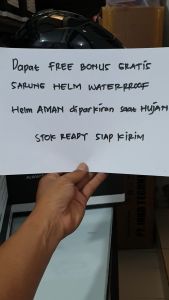 Dapat FREE BONUS GRATIS
SARUNG HELM WATERPROOF
Helm AMAN diparkiran saat HUJAN
STOK READY SIAP KIRIM